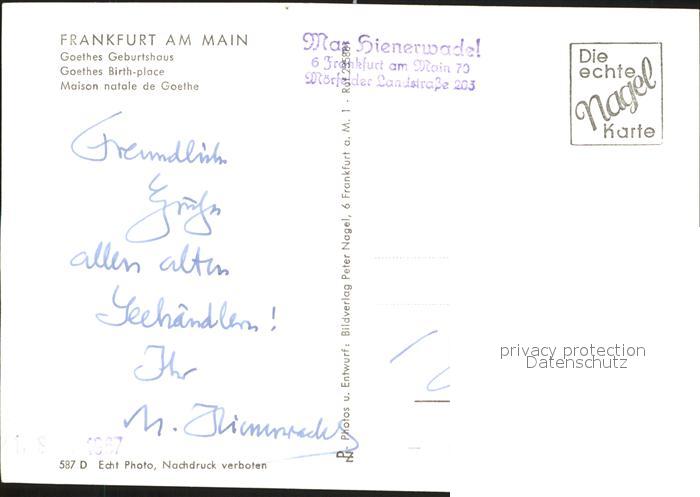 FRANKFURT AM MAIN
Goethes Geburtshaus
Goethes Birth-place
Maison natale de Goethe
Max Hienerwadel
6 Frankfurt am Main 70
Mörfelder Landstraße 203
Die
echte
Nagel
Karte
Freundlich
Grüße
allen alten
Seehändlern!
Ihr
M. Hienerwadel
Photos u. Entwurf: Bildverlag Peter Nagel, 6 Frankfurt a. M. 1
privacy protection
Datenschutz
587 D Echt Photo, Nachdruck verboten